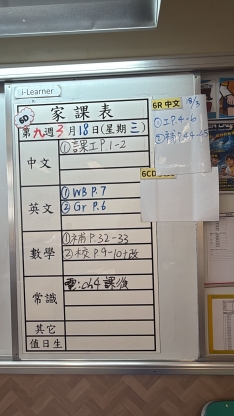 i-Learner
6D
家課表
第九週3月18日(星期三)
中文
①課工P.1-2
英文
①WB P.7
②Gr P.6
數學
①補P.32-33
②校P9-10+改
常識
電:ch4 課後
其它
值日生
6R 中文 18/3
①工P.4-6
②補P.44-45
6CD